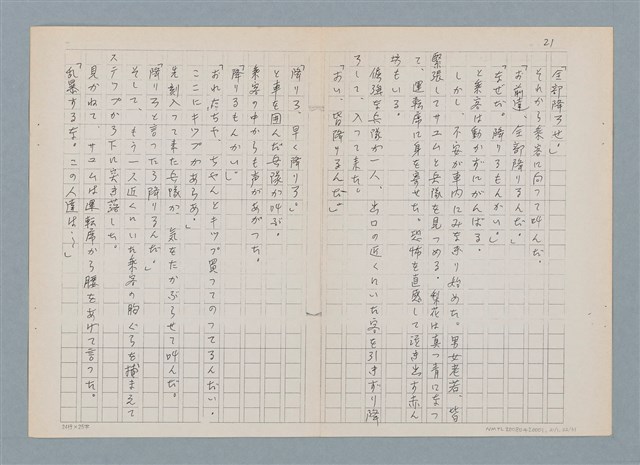 21
「全部降ろせ。」
それから乗客に向って叫んだ。
「お前達、全部降りるんだ。」
「なぜだ。降りるもんかい。」
と乗客は動かずにがんばる。
しかし、不安が車内にみなぎり始めた。男女老若、皆
緊張してサユムと兵隊を見つめる。梨花は真っ青になっ
て、運転席に身を寄せた。恐怖を直感して泣き出す赤ん
坊もいる。
倔強な兵隊が一人、出口の近くにいた客を引きずり降
ろして、入って来た。
「おい、皆降りるんだ。」
「降りろ、早く降りろ。」
と車を囲んだ兵隊が叫ぶ。
乗客の中からも声があがった。
「降りるもんかい。」
「おれたちゃ、ちゃんとキップ買ってのってるんだい。
ここにキップがあらあ。」
先刻入って来た兵隊が、気をたかぶらせて叫んだ。
「降りろと言ったら降りるんだ。」
そして、もう一人近くにいた乗客の胸ぐらを捕まえて
ステップから下に突き落した。
見かねて、サユムは運転席から腰をあげて言った。
「乱暴するな。この人達は…」